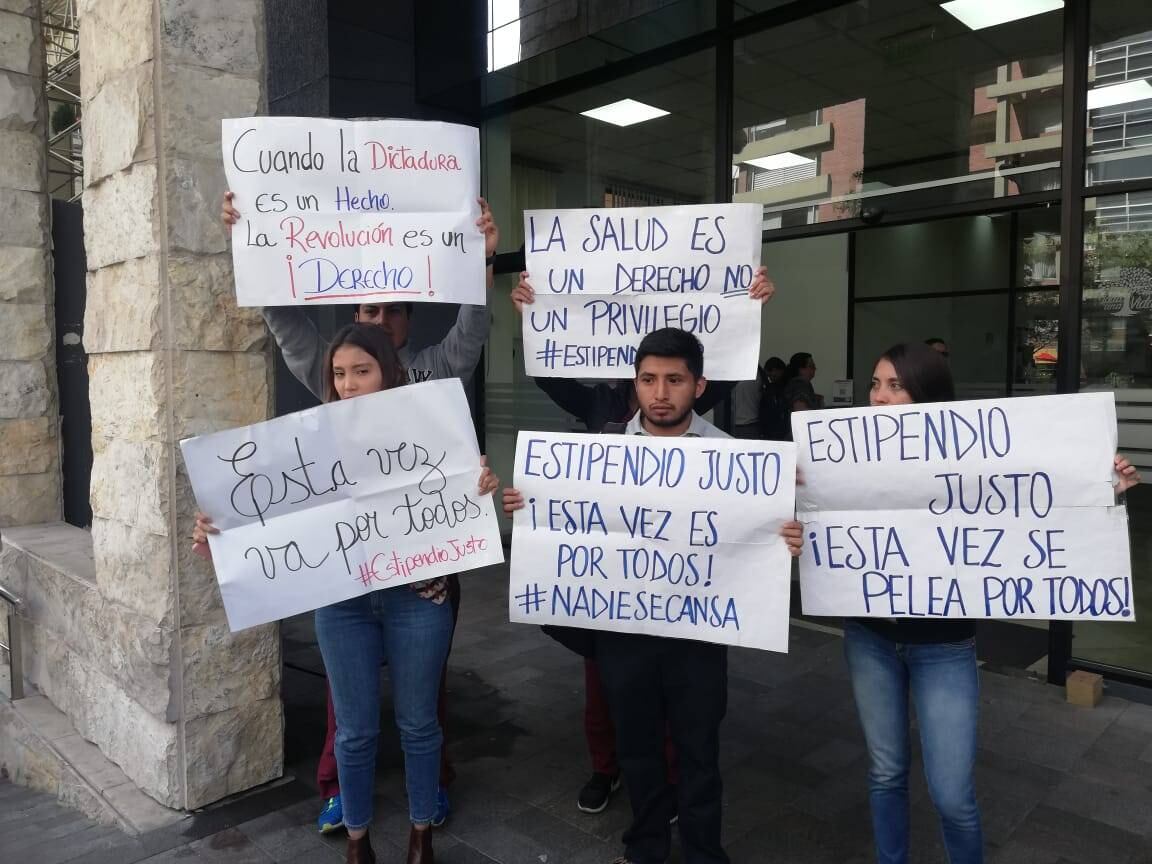 Cuando la Dictadura
es un Hecho.
La Revolución es un
¡Derecho!
LA SALUD ES
UN DERECHO NO
UN PRIVILEGIO
Esta vez
va por todos.
#EstipendioJusto
ESTIPENDIO JUSTO
¡ESTA VEZ ES
POR TODOS!
#NADIESECANSA
ESTIPENDIO
JUSTO
¡ESTA VEZ SE
PELEA POR TODOS!